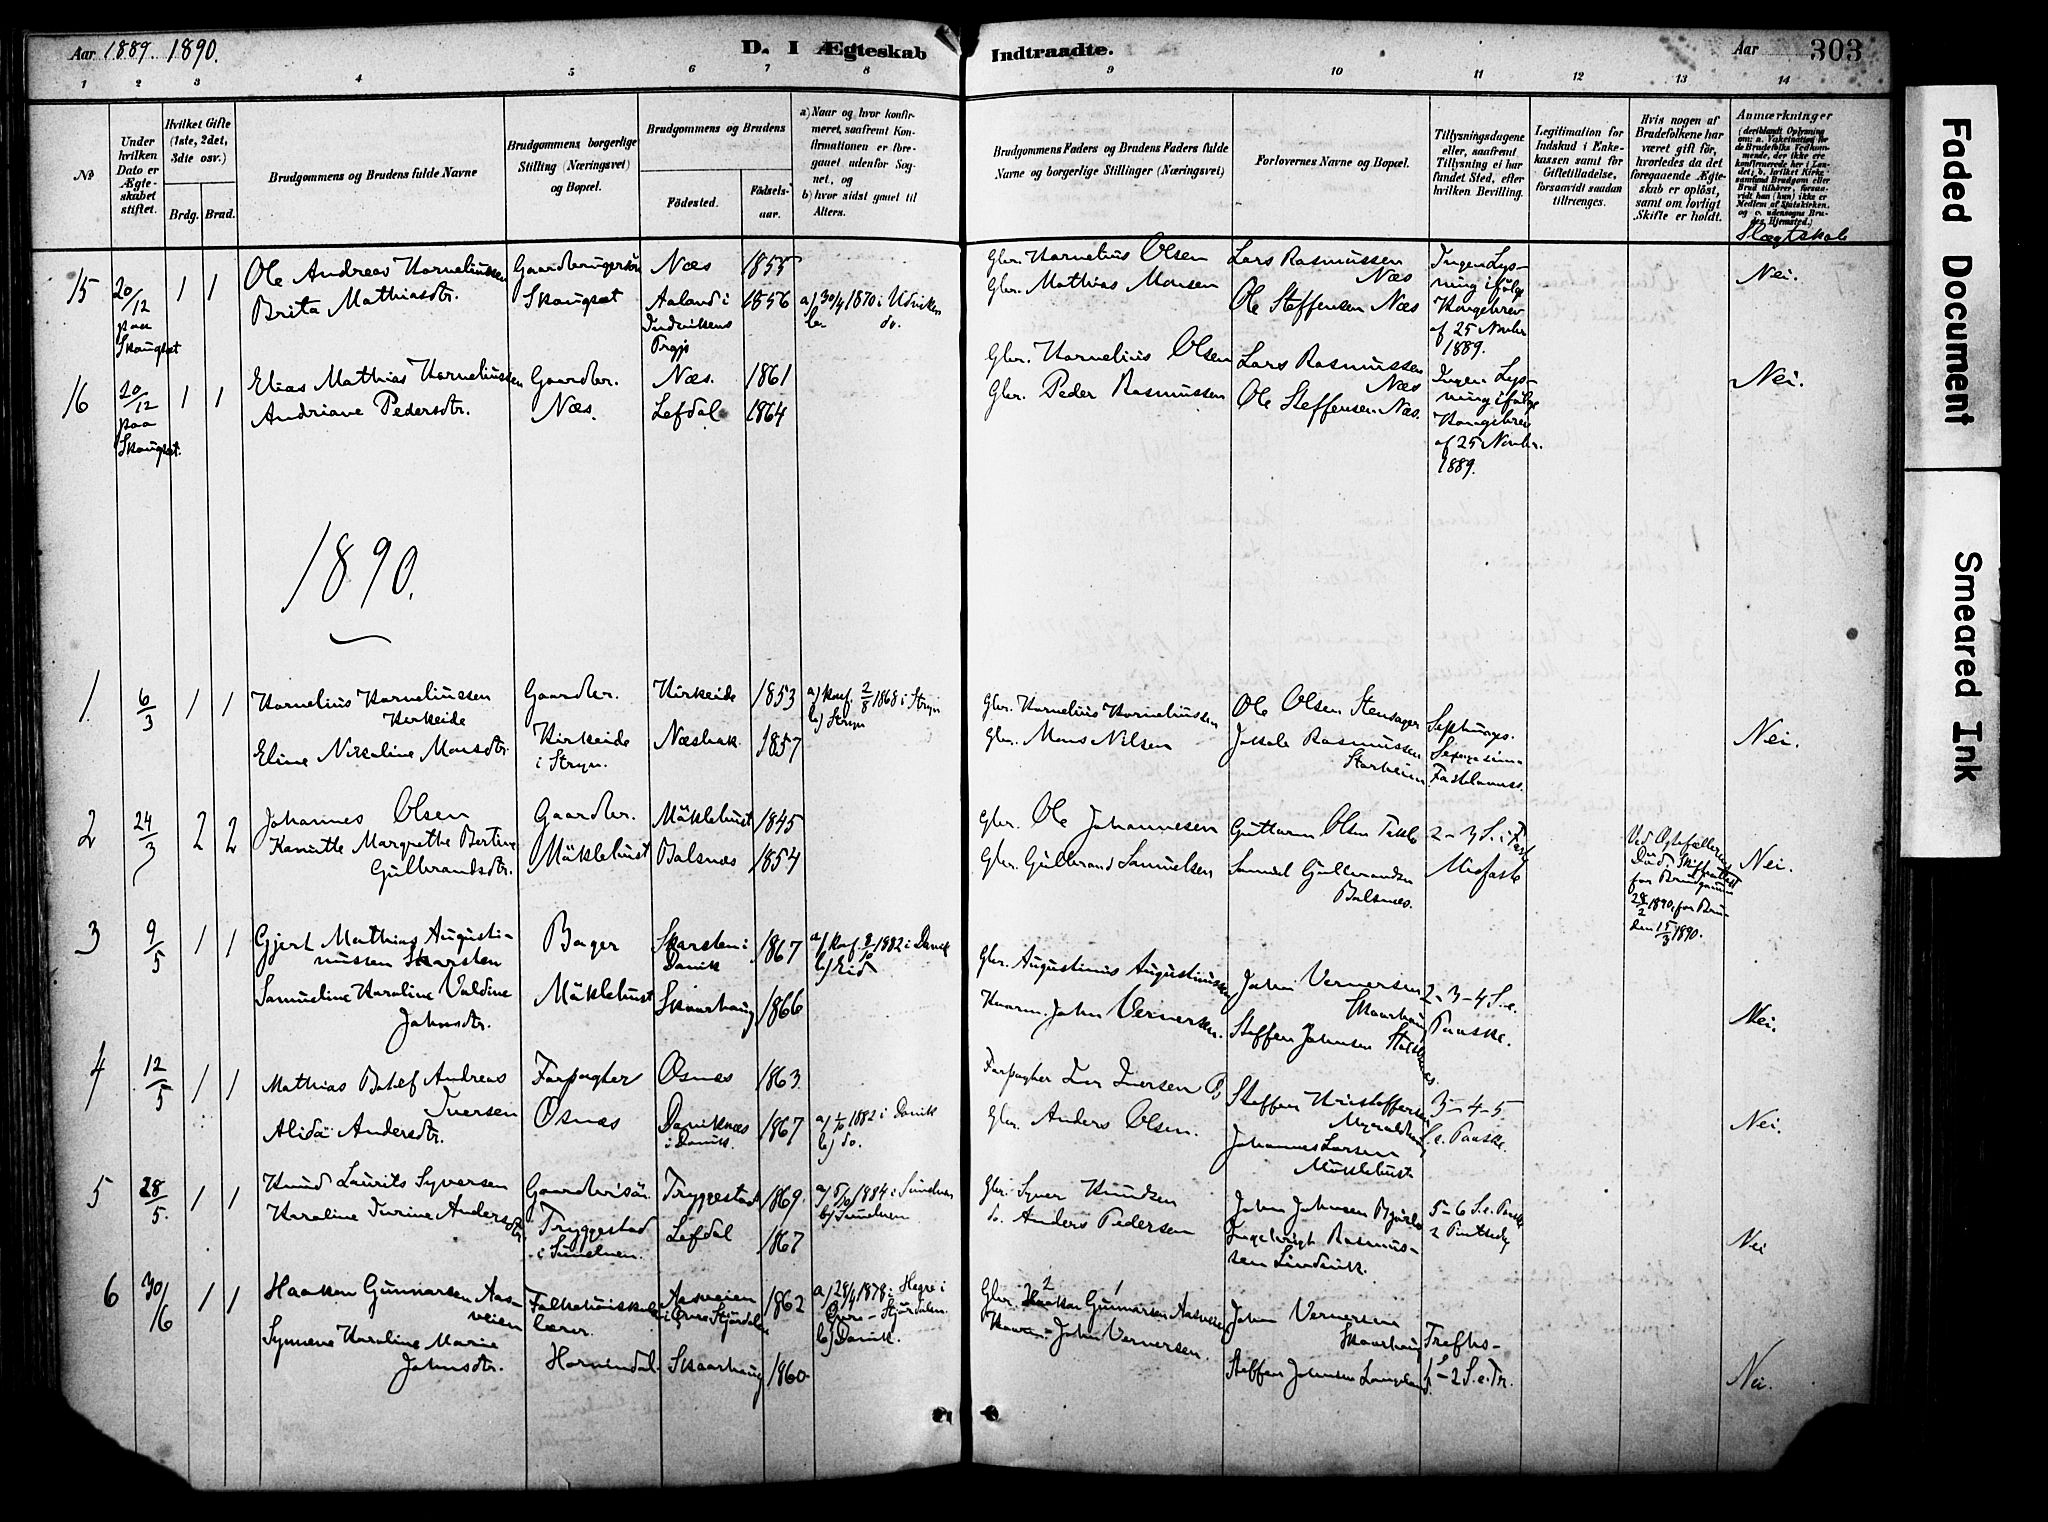 Aar 1889. 1890.
D. I Ægteskab
Indtraadte.
Aar
303
1 2 3 4 5 6 7 8 9 10 11 12 13 14
No
Under hvilken Dato er Ægteskabet stiftet.
Hvilket Gifte (1ste, 2det, 3die osv.)
Brdg.
Brud.
Brudgommens og Brudens fulde Navne
Brudgommens borgerlige Stilling (Næringsvei) og Bopæl.
Brudgommens og Brudens
Födested.
Födsels-aar.
a) Naar og hvor konfirmeret, saafremt Konfirmationen er foregaaet udenfor Sognet, og
b) hvor sidst gaaet til Alters.
Brudgommens Faders og Brudens Faders fulde Navne og borgerlige Stillinger (Næringsvei)
Forlovernes Navne og Bopæl.
Tillysningsdagene eller, saafremt Tillysning ei har fundet Sted, efter hvilken Bevilling.
Legitimation for Indskud i Enkekassen samt for Giftetilladelse, forsaavidt saadan tiltrænges.
Hvis nogen af Brudefolkene har været gift för, hvorledes da det foregaaende Ægteskab er oplöst, samt om lovligt Skifte er holdt.
Anmærkninger
(deriblandt Oplysning om: a. Vakcination for de Brudefolks Vedkommende, der ikke ere konfirmerede her i Landet; b. hvilket Kirkesamfund Brudgom eller Brud tilhörer, forsaavidt han (hun) ikke er Medlem af Statskirken, og c. udensogns Brudes Hjemsted.)
Slægtskab
15
20/12
paa
Skaugset
1 1
Ole Andreas Korneliussen
Brita Mathiasdtr.
Gaardbrugersön
Skaugset
Næs
Aaland i
Indvikens
Prgj.
1855
1856
a) 30/4 1870 i Udviken
b) do.
Gbr. Kornelius Olsen
Gbr. Mathias Monsen
Lars Rasmussen
Næs
Ole Steffensen Næs
Ingen Lys-
ning ifölge
Kongebrev
af 25 Novbr
1889.
Nei.
16
20/12
paa
Skaugset.
1 1
Elias Matthias Korneliussen
Andriane Pedersdtr.
Gaardbr.
Næs.
Næs.
Lefdal
1861
1864
Gbr. Kornelius Olsen
Gbr. Peder Rasmussen
Lars Rasmussen
Næs
Ole Steffensen Næs.
Ingen Lys-
ning ifölge
Kongebrev
af 25 Novbr.
1889.
Nei.
1890.
1.
6/3
1 1
Kornelius Korneliussen
Kirkeide
Eline Nikoline Monsdtr.
Gaardbr.
Kirkeide
i Stryn.
Kirkeide
Næsbak
1853
1857
a) konf. 2/8 1868 i Stryn
b) Stryn
Gbr. Kornelius Korneliussen
Gbr. Mons Nilsen
Ole Olsen Stensager
Rasmussen
Starheim
Septuages.
Sexagesima
Fastelavnss.
Nei.
2
24/3
2 2
Johannes Olsen
Kanutte Margrethe Bertine
Gulbrandsdtr.
Gaardbr.
Mÿklebust
Mÿklebust
Balsnæs
1845
1854
Gbr. Ole Johannesen
Gbr. Gulbrand Samuelsen
Guttorm Olsen
Samuel Gulbrandsen
Balsnæs.
2-3 S. i Fast
Midfaste
Ved Ægtefællernes
Död. Skifteattest
for Brudgommen
28/2 1890, for Bru-
den 15/3 1890.
Nei.
3
9/5
1 1
Gjert Mathias Augusti-
nussen Skarsten
Samueline Karoline Valdine
Johnsdtr.
Bager
Mÿklebust
Skarsten i
Davik
Skaarhaug
1867
1866
a) konf. 8/10 1882 i Davik
b) Eid
Gbr. Augustinus Augustinussen
Kaarm. John Vernersen.
John Vernersen
Skaarhaug
Steffen Johnsen
2-3-4 S. e.
Paaske.
Nei.
4
12/5
1 1
Mathias Andreas
Iversen
Alida Andersdtr.
Forpagter
Osnæs
Osnæs
Daviknæs
i Davik.
1863
1867
1882 i Davik
b) do.
Forpagter Iver Iversen
Gbr. Anders Olsen.
Steffen Kristoffersen
Johannes Larsen
Mÿklebust
3-4-5
S. e. Paaske.
Nei.
5
28/5.
1 1
Knud Laurits Syversen
Karoline Andersdtr.
Gaardbr.sön
Tryggestad
i Sunelven.
Tryggestad
Lefdal
1869.
1867
a) 5/10 1884 i Sunelven
b) Sunelven
Gbr. Syver Knudsen
do. Anders Pedersen
John Johnsen Bjørlo
Ingebrigt Rasmus-
sen Lindvik.
5-6 S. e. Paaske
2 Pintsedag
Nei
6
30/6
1 1
Haakon Gunnarsen Aas-
veien
Synneve Karoline Marie
Johnsdtr.
Folkehöiskole-
lærer.
Hornindal.
Aasveien
i Övre Stjördalen
Skaarhaug
1862
1860
a) 28/4 1878 i Hegre i
Övre-Stjördalen.
b) Davik.
Gbr. Haakon Gunnarsen Aasveien
Kaarm. John Vernersen.
John Vernersen
Skaarhaug
Steffen Johnsen Langeland.
Trefts-
1-2 S. e. Tr.
Nei.
Faded Document
Smeared Ink